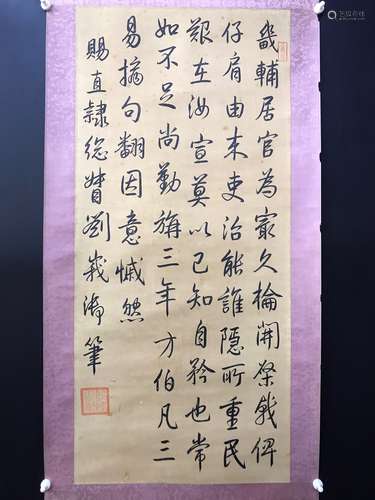 畿輔居官為㝡久掄開棨戟俾
仔肩由来吏治能誰隱所重民
艱在汝宣莫以已知自矜也常
如不足尚勤旃三年方伯凡三
易摛句翻因意慽然
賜直隸緫督劉峩御筆